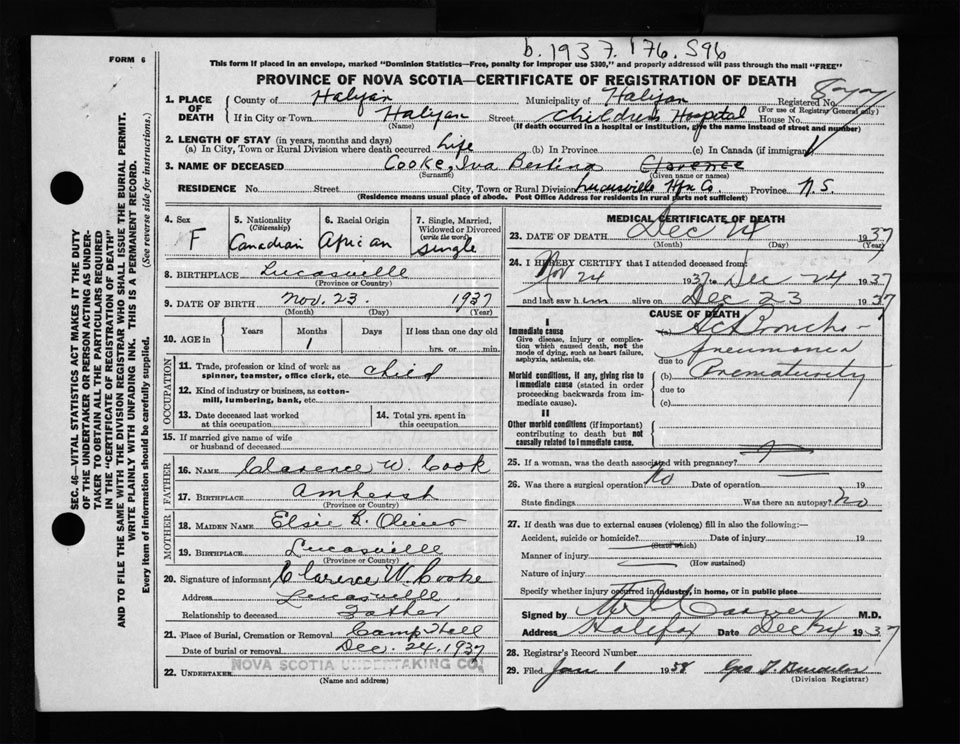 b. 1937. 176. 596
FORM 6
This form if placed in an envelope, marked "Dominion Statistics—Free, penalty for improper use $300," and properly addressed will pass through the mail "FREE"
PROVINCE OF NOVA SCOTIA—CERTIFICATE OF REGISTRATION OF DEATH
1. PLACE OF DEATH County of Halifax Municipality of Halifax Registered No.
(For use of Registrar General only)
If in City or Town Halifax Street Childrens Hospital House No.
(Name) (If death occurred in a hospital or institution, give the name instead of street and number)
2. LENGTH OF STAY (in years, months and days)
(a) In City, Town or Rural Division where death occurred Life (b) In Province (c) In Canada (if immigrant)
3. NAME OF DECEASED Cooke, Iva Bertina Clarence
(Surname) (Given name or names)
RESIDENCE No. Street City, Town or Rural Division Lucasville Hfx Co. Province N.S.
(Residence means usual place of abode. Post Office Address for residents in rural parts not sufficient)
4. Sex F
5. Nationality (Citizenship) Canadian
6. Racial Origin African
7. Single, Married, Widowed or Divorced (write the word) Single
8. BIRTHPLACE Lucasville
(Province or Country)
9. DATE OF BIRTH Nov. 23. 1937
(Month) (Day) (Year)
10. AGE in Years Months Days If less than one day old
1 hrs. or min.
OCCUPATION
11. Trade, profession or kind of work as spinner, teamster, office clerk, etc. Child
12. Kind of industry or business, as cotton-mill, lumbering, bank, etc.
13. Date deceased last worked at this occupation
14. Total yrs. spent in this occupation
15. If married give name of wife or husband of deceased
FATHER
16. NAME Clarence W. Cook
17. BIRTHPLACE Amherst
(Province or Country)
MOTHER
18. MAIDEN NAME Elsie B. Oliver
19. BIRTHPLACE Lucasville
(Province or Country)
20. Signature of informant Clarence W. Cooke
Address Lucasville
Relationship to deceased Father
21. Place of Burial, Cremation or Removal Camp Hill
Date of burial or removal Dec. 24, 1937
22. UNDERTAKER NOVA SCOTIA UNDERTAKING CO.
(Name and address)
MEDICAL CERTIFICATE OF DEATH
23. DATE OF DEATH Dec 24 1937
(Month) (Day) (Year)
24. I HEREBY CERTIFY that I attended deceased from
Nov 24 1937 to Dec 24 1937
and last saw him alive on Dec 23 1937
CAUSE OF DEATH
I
Immediate cause
Give disease, injury or complication which caused death, not the mode of dying, such as heart failure, asphyxia, asthenia, etc.
(a) Act Broncho-pneumonia
due to
Morbid conditions, if any, giving rise to immediate cause (stated in order proceeding backwards from immediate cause).
(b) Prematurity
due to
(c)
II
Other morbid conditions (if important) contributing to death but not causally related to immediate cause.
25. If a woman, was the death associated with pregnancy?
26. Was there a surgical operation? No Date of operation 19
State findings Was there an autopsy? No
27. If death was due to external causes (violence) fill in also the following:—
Accident, suicide or homicide? Date of injury 19
(State which)
Manner of injury
(How sustained)
Nature of injury
Specify whether injury occurred in industry, in home, or in public place
Signed by M.D.
Address Halifax Date Dec 24 1937
28. Registrar's Record Number
29. Filed Jan 1 1938
(Division Registrar)
SEC. 46—VITAL STATISTICS ACT MAKES IT THE DUTY
OF THE UNDERTAKER OR PERSON ACTING AS UNDER-
TAKER TO OBTAIN ALL THE PARTICULARS REQUIRED
IN THE "CERTIFICATE OF REGISTRATION OF DEATH"
AND TO FILE THE SAME WITH THE DIVISION REGISTRAR WHO SHALL ISSUE THE BURIAL PERMIT.
WRITE PLAINLY WITH UNFADING INK. THIS IS A PERMANENT RECORD.
Every item of information should be carefully supplied. (See reverse side for instructions.)